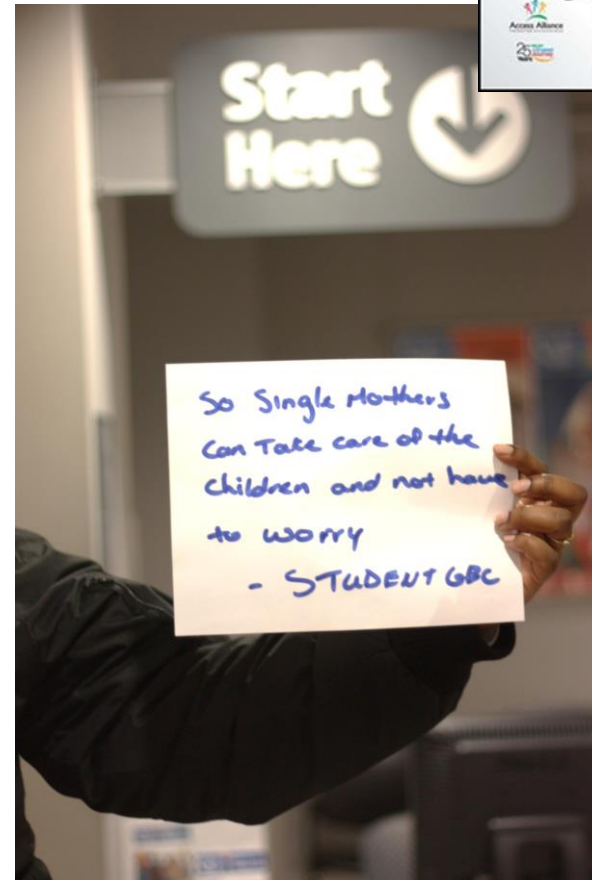 Access Alliance
Start
Here
So Single Mothers
Can Take care of the
children and not have
to worry
- STUDENT GBC